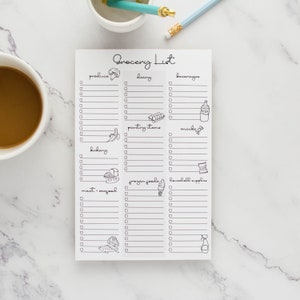 Grocery List
produce
dairy
beverages
pantry items
snacks
baking
meat + seafood
frozen foods
household supplies